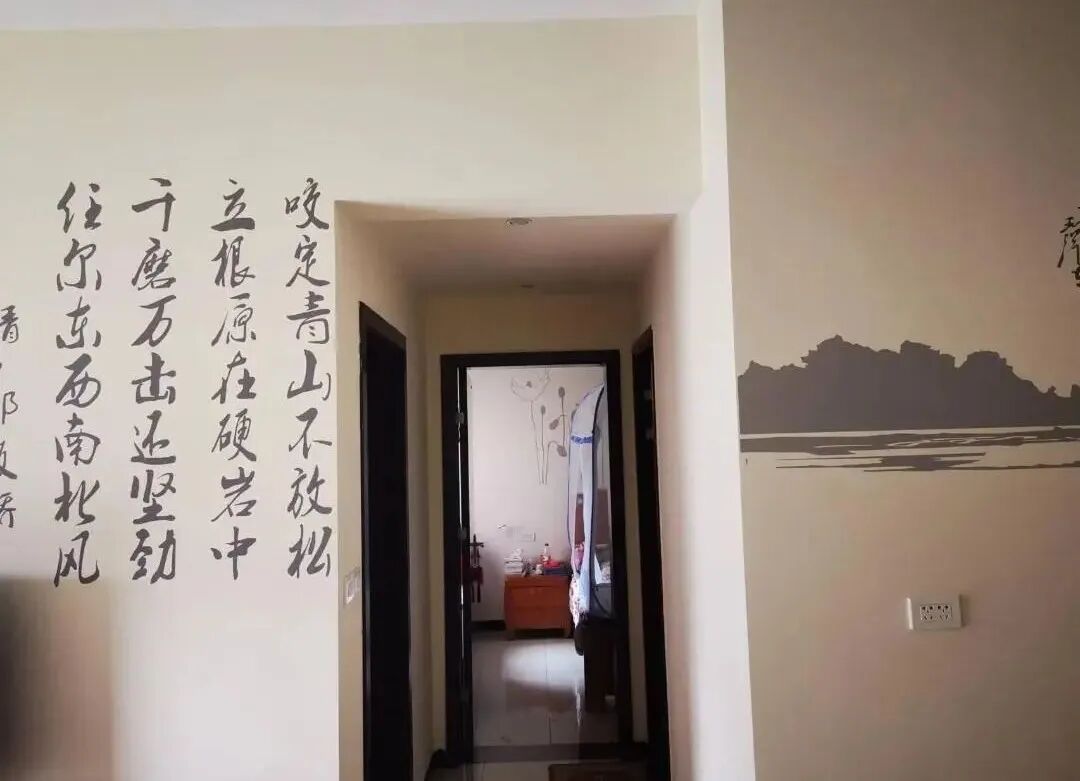 咬定青山不放松
立根原在硬岩中
千磨万击还坚劲
任尔东西南北风